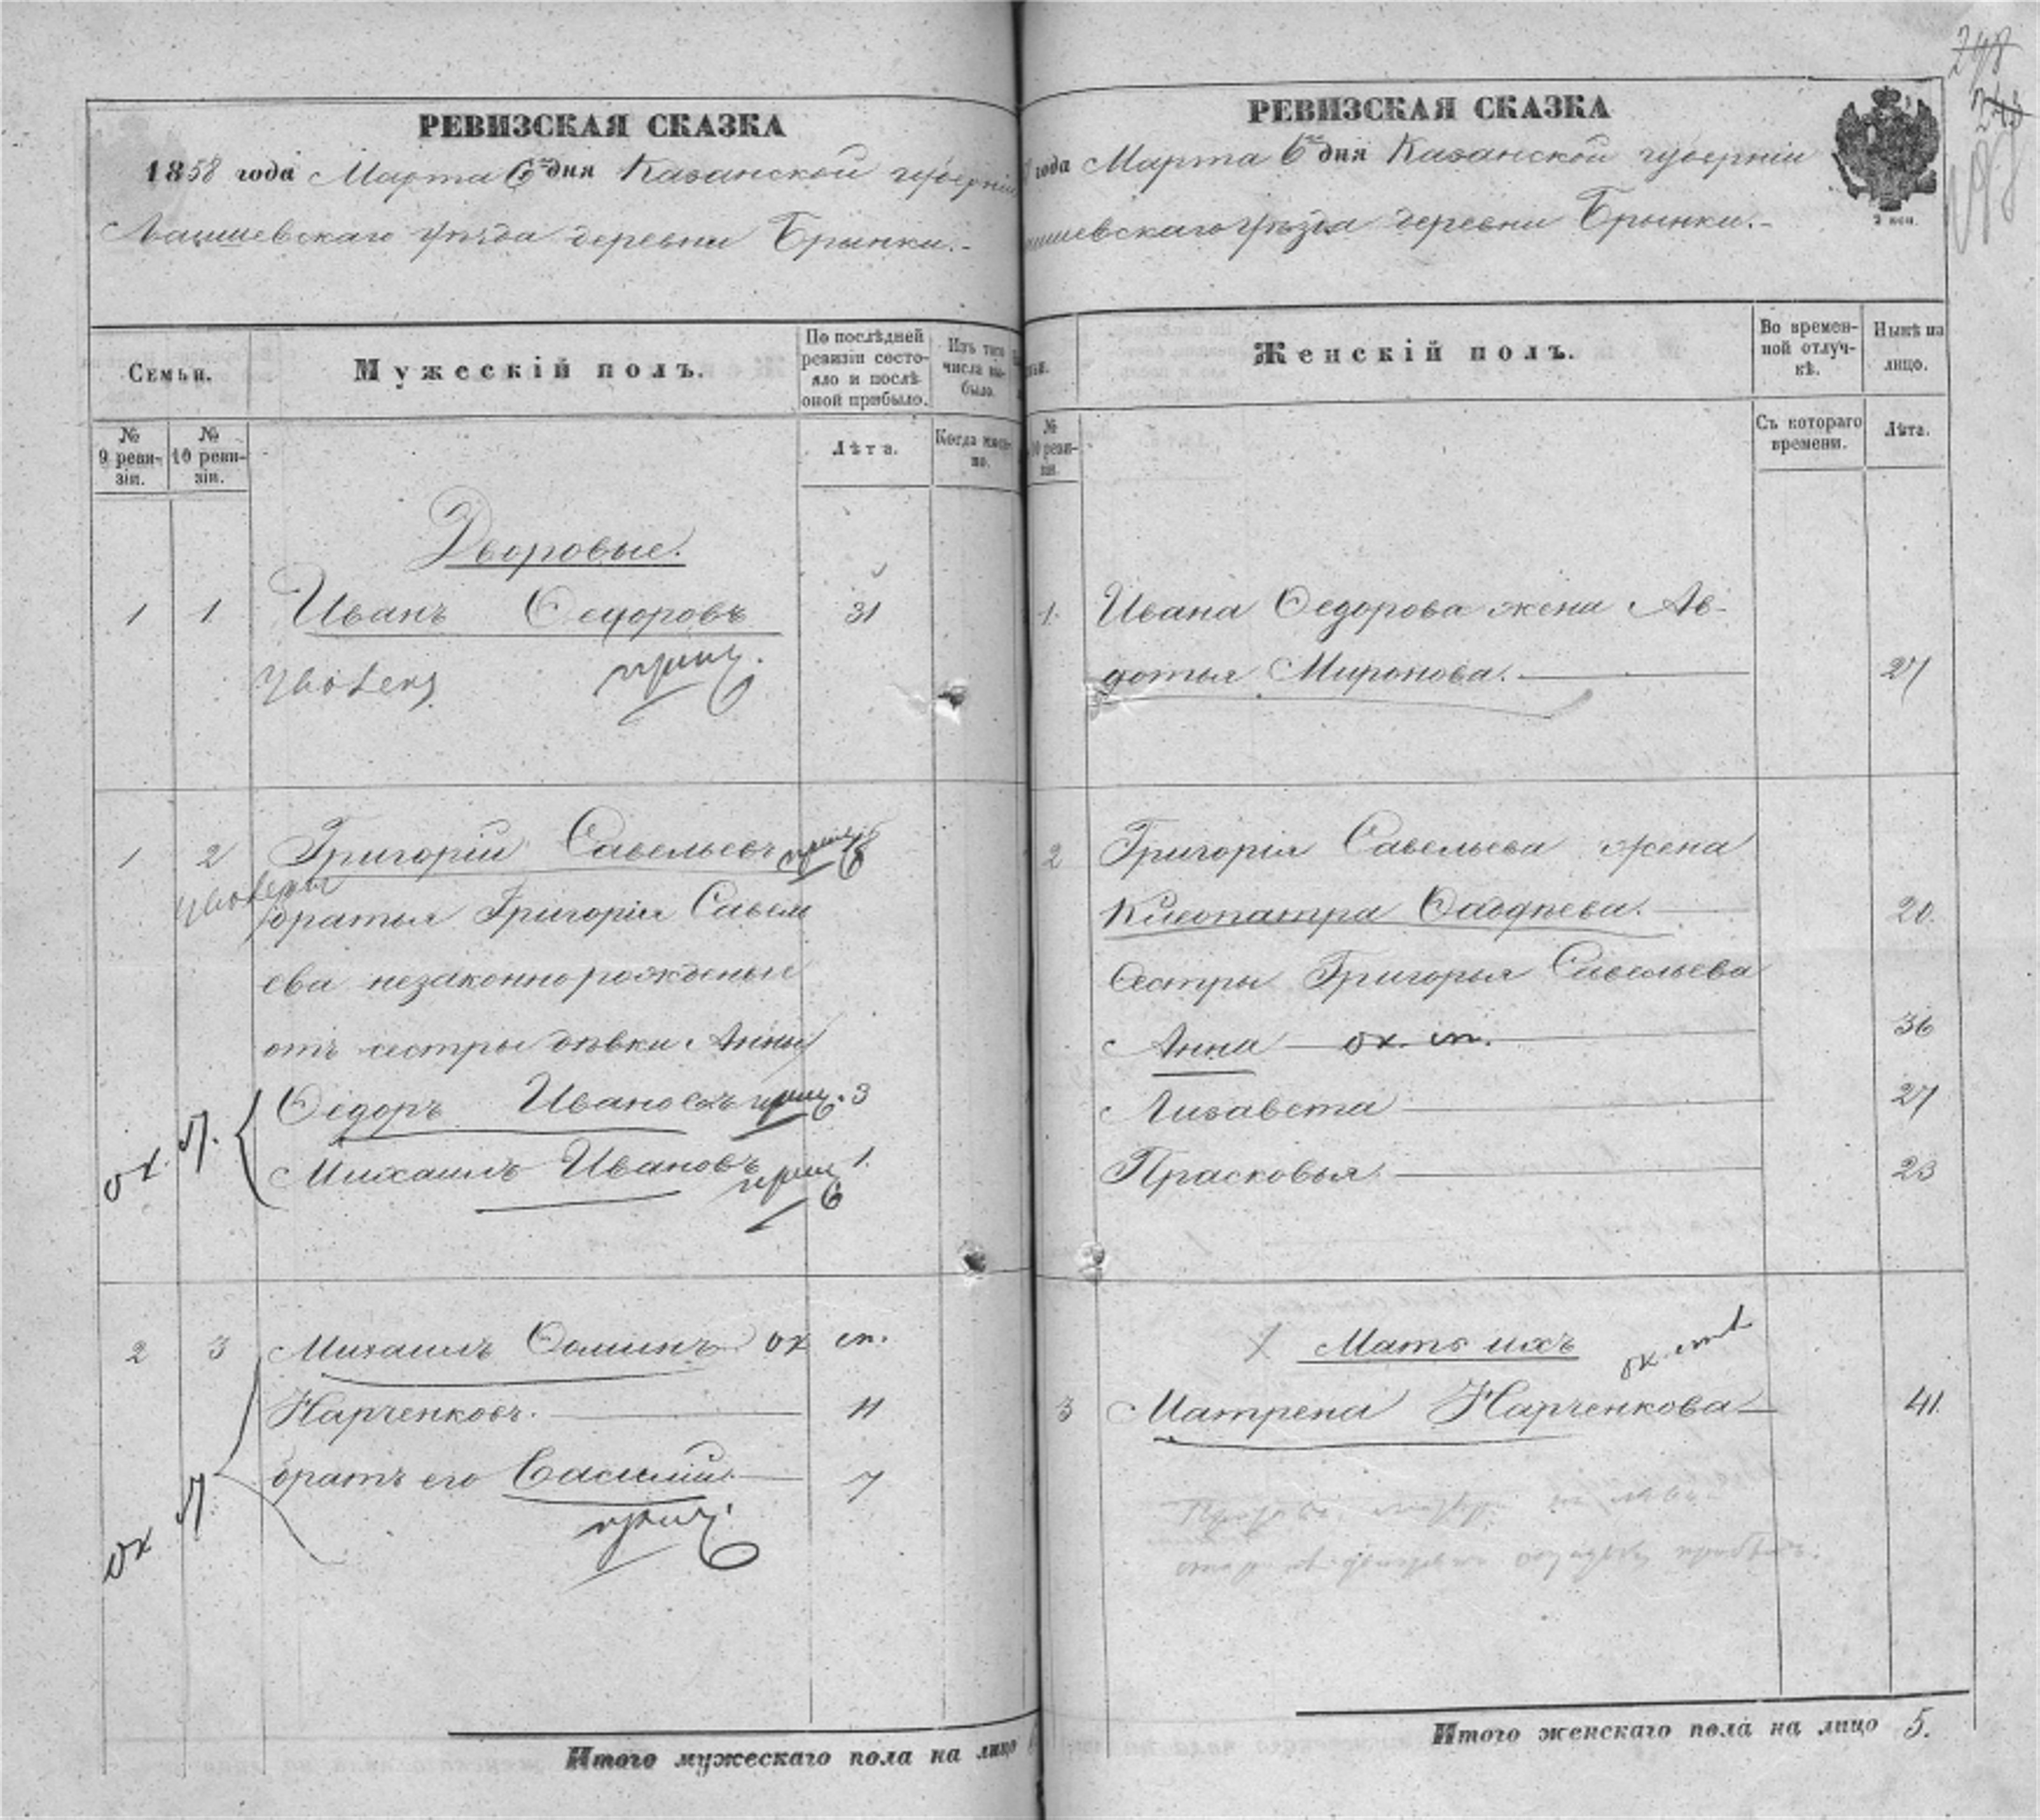 РЕВИЗСКАЯ СКАЗКА
1858 года Марта 6го дня Казанской губерніи
Лаишевскаго уѣзда деревни Брынки.-
Семьи.
Мужескій полъ.
По послѣдней
ревизіи состо-
яло и послѣ
оной прибыло.
Изъ того
числа вы-
было.
№
9 реви-
зіи.
№
10 реви-
зіи.
Лѣта.
Когда имен-
но.
Дворовые.
1 1 Иванъ Ѳедоровъ 31
уволены
1 2 Григорій Савельевъ
уволены
братья Григорія Савель
ева незаконнорожденые
отъ сестры дѣвки Анны
Ѳедоръ Ивановъ 3
Михаилъ Ивановъ 1.
2 3 Михаилъ Ѳоминъ ох ст.
Нарченковъ. 11
братъ его Василій. 7
Итого мужескаго пола на лицо
298
РЕВИЗСКАЯ СКАЗКА
года Марта 6го дня Казанской губерніи
ишевскаго уѣзда деревни Брынки.-
Женскій полъ.
Во времен-
ной отлуч-
кѣ.
Нынѣ на
лицо.
№
10 реви-
зіи.
Съ котораго
времени.
Лѣта.
1. Ивана Ѳедорова жена Ав-
дотья Миронова. 27
2 Григорія Савельева жена
Клеопатра Ѳаддѣева. 20.
Сестры Григорья Савельева
Анна ох. ст. 36
Лизавета 27
Прасковья 23
Мать ихъ
3 Матрена Нарченкова 41.
Итого женскаго пола на лицо 5.